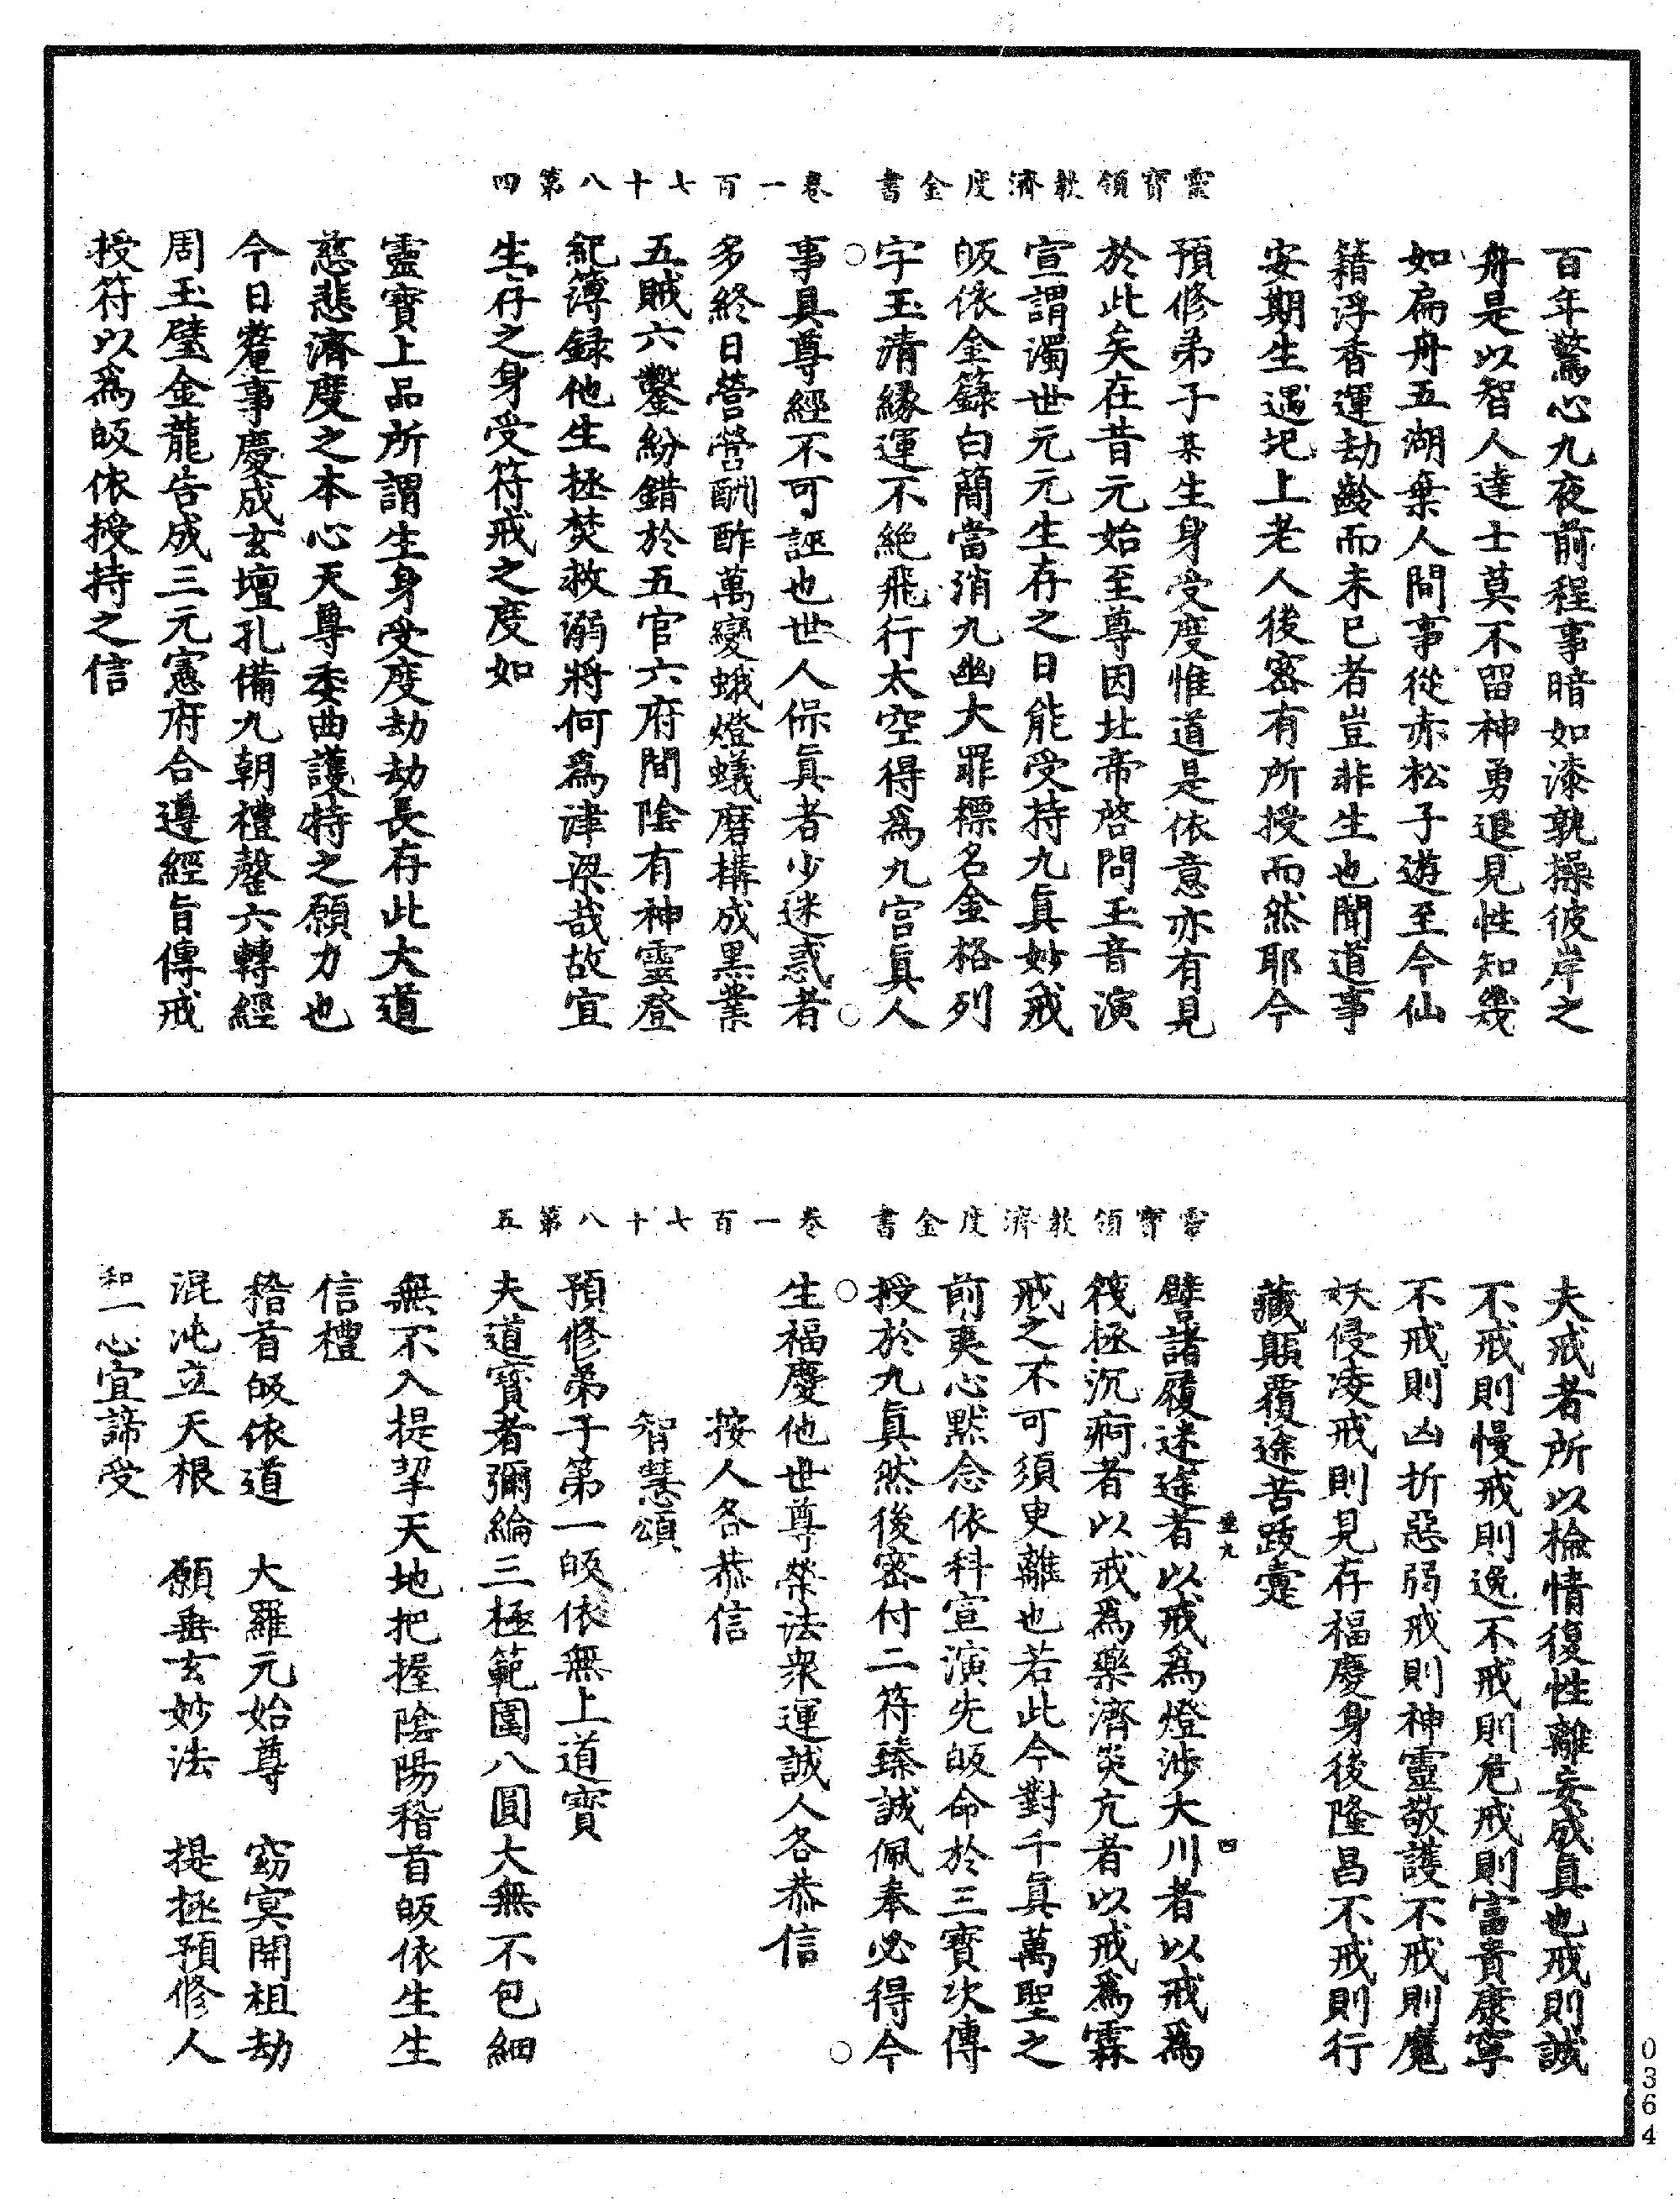 百年驚心九夜前程事暗如漆孰操彼岸之
舟是以智人達士莫不留神勇退見性知幾
如扁舟五湖棄人間事從赤松子遊至今仙
籍浮香運劫齡而未已者豈非生也聞道事
安期生遇圯上老人後密有所授而然耶今
靈寶領教濟度金書　卷一百七十八第四
預修弟子某生身受度惟道是依意亦有見
於此矣在昔元始至尊因北帝啓問玉音演
宣謂濁世元元生存之日能受持九眞妙戒
皈依金籙白簡當消九幽大罪標名金格列
字玉清緣運不絕飛行太空得爲九宮眞人
事具尊經不可誣也世人保眞者少迷惑者
多終日營營酬酢萬變蛾燈蟻磨構成黑業
五賊六鑿紛錯於五官六府間陰有神靈登
紀簿録他生拯焚救溺將何爲津梁哉故宜
生存之身受符戒之度如
靈寶上品所謂生身受度劫劫長存此大道
慈悲濟度之本心天尊委曲護持之願力也
今日鼇事慶成玄壇孔備九朝禮罄六轉經
周玉璧金龍告成三元憲府合遵經旨傳戒
授符以爲皈依授持之信
夫戒者所以掄情復性離妄成眞也戒則誠
不戒則慢戒則逸不戒則危戒則富貴康寧
不戒則凶折惡弱戒則神靈敬護不戒則魔
妖侵凌戒則見存福慶身後隆昌不戒則行
藏顛覆途苦跂疐
靈寶領教濟度金書　卷一百七十八第五
垂九　四
譬諸履迷途者以戒爲燈涉大川者以戒爲
筏拯沉痾者以戒爲藥濟炎亢者以戒爲霖
戒之不可須臾離也若此今對千眞萬聖之
前夷心默念依科宣演先皈命於三寶次傳
授於九眞然後密付二符臻誠佩奉必得今
生福慶他世尊榮法衆運誠人各恭信
按人各恭信
智慧頌
預修弟子第一皈依無上道寶
夫道寶者彌綸三極範圍八圓大無不包細
無不入提挈天地把握陰陽稽首皈依生生
信禮
稽首皈依道　大羅元始尊　窈冥開祖劫
混沌立天根　願垂玄妙法　提拯預修人
和一心宜諦受
0364